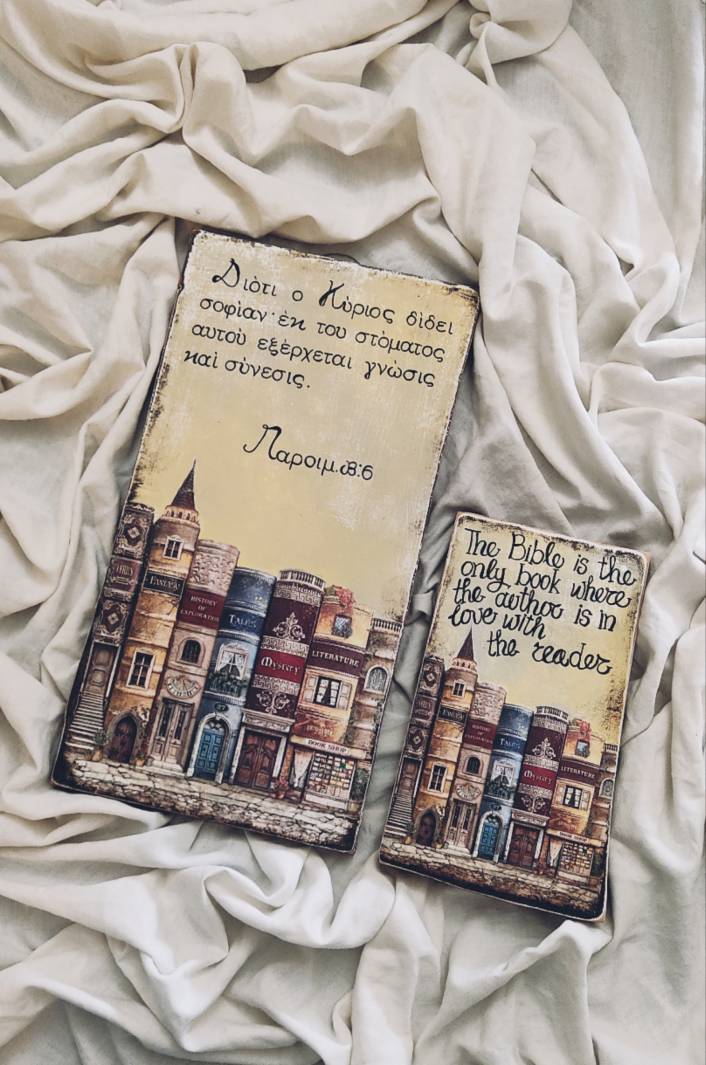 Διότι ο Κύριος δίδει
σοφίαν· έκ του στόματος
αυτού εξέρχεται γνώσις
καί σύνεσις.
Παροιμ.β:6
FANTASY
HISTORY
OF
EXPLORATION
TALES
MYSTERY
LITERATURE
BOOK SHOP
The Bible is the
only book where
the author is in
love with
the reader
FANTASY
TALES
MYSTERY
LITERATURE